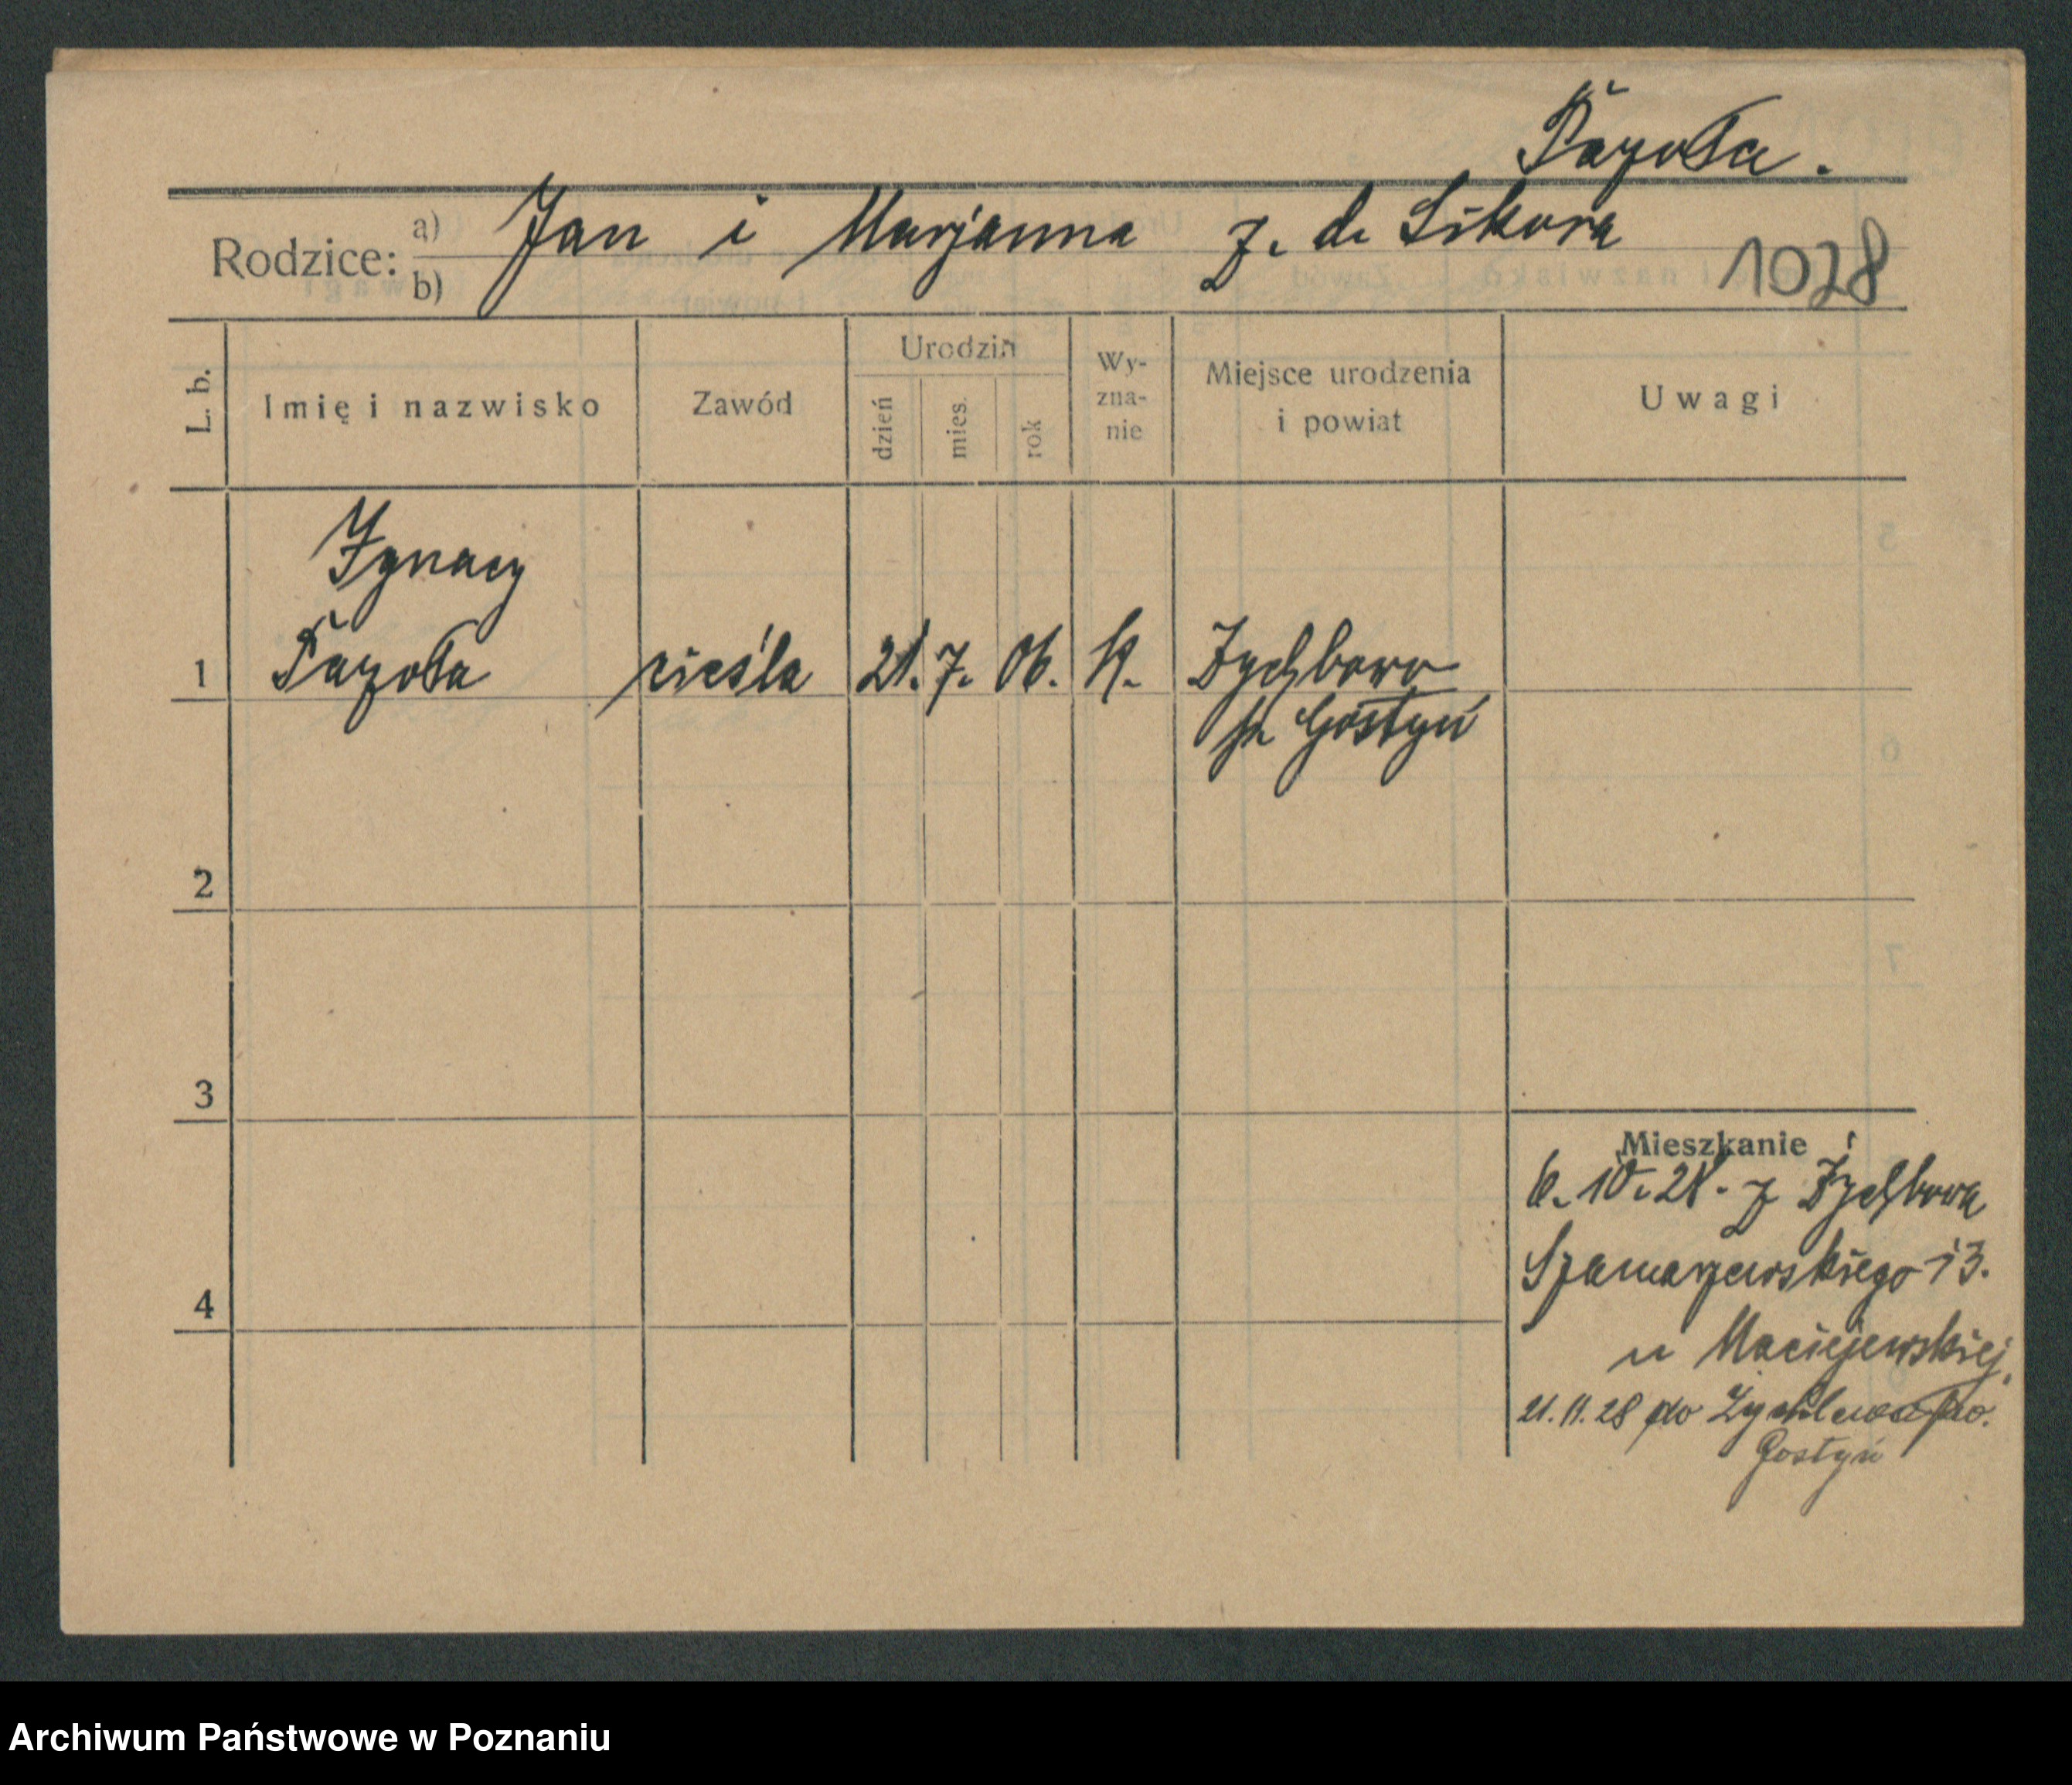 Pazoła.
Rodzice: a) Jan i Marjanna z. d. Sikora
b)
1028
L. b.
Imię i nazwisko
Zawód
Urodzin
dzień
mies.
rok
Wy-
zna-
nie
Miejsce urodzenia
i powiat
Uwagi
Ignacy
1 Pazoła cieśla 21. 7. 06. K. Zychlewo
p. Gostyń
2
3
4
Mieszkanie
6. 10. 28. z
Szamarzewskiego 13.
u Maciejewskiej.
21. 11. 28 do Zychlewa po.
Gostyń
Archiwum Państwowe w Poznaniu